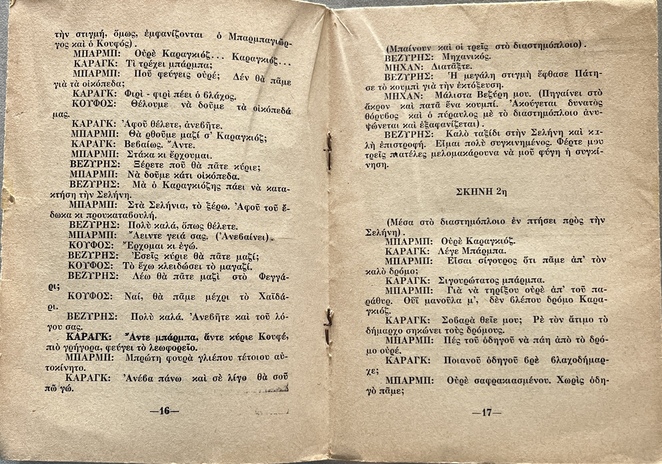 τὴν στιγμή, ὅμως, ἐμφανίζονται ὁ Μπαρμπαγιώρ-
γος καὶ ὁ Κουφός).
ΜΠΑΡΜΠ: Οὐρὲ Καραγκιόζ... Καραγκιόζ...
ΚΑΡΑΓΚ: Τί τρέχει μπάρμπα;
ΜΠΑΡΜΠ: Ποῦ φεύγεις οὐρέ; Δὲν θὰ πᾶμε
γιὰ τὰ οἰκόπεδα;
ΚΑΡΑΓΚ: Φιρὶ - φιρὶ πάει ὁ βλάχος.
ΚΟΥΦΟΣ: Θέλουμε νὰ δοῦμε τὰ οἰκόπεδά
μας.
ΚΑΡΑΓΚ: Ἀφοῦ θέλετε, ἀνεβῆτε.
ΜΠΑΡΜΠ: Θὰ ρθοῦμε μαζὶ σ' Καραγκιόζ;
ΚΑΡΑΓΚ: Βεβαίως. Ἄντε.
ΜΠΑΡΜΠ: Στάκα κι ἔρχουμαι.
ΒΕΖΥΡΗΣ: Ξέρετε ποῦ θὰ πᾶτε κύριε;
ΜΠΑΡΜΠ: Νὰ δοῦμε κάτι οἰκόπεδα.
ΒΕΖΥΡΗΣ: Μὰ ὁ Καραγκιόζης πάει νὰ κατα-
κτήση τὴν Σελήνη.
ΜΠΑΡΜΠ: Στὰ Σελήνια, τὸ ξέρω. Ἀφοῦ τοῦ ἔ-
δωκα κι προυκαταβουλή.
ΒΕΖΥΡΗΣ: Πολὺ καλά, ὅπως θέλετε.
ΜΠΑΡΜΠ: Ἄειντε γειά σας. (Ἀνεβαίνει).
ΚΟΥΦΟΣ: Ἔρχομαι κι ἐγώ.
ΒΕΖΥΡΗΣ: Ἐσεῖς κύριε θὰ πᾶτε μαζί;
ΚΟΥΦΟΣ: Τὸ ἔχω κλειδώσει τὸ μαγαζί.
ΒΕΖΥΡΗΣ: Λέω θὰ πᾶτε μαζὶ στὸ Φεγγά-
ρι;
ΚΟΥΦΟΣ: Ναί, θὰ πᾶμε μέχρι τὸ Χαϊδά-
ρι.
ΒΕΖΥΡΗΣ: Πολὺ καλά. Ἀνεβῆτε καὶ τοῦ λό-
γου σας.
ΚΑΡΑΓΚ: Ἄντε μπάρμπα, ἄντε κύριε Κουφέ,
πιὸ γρήγορα, φεύγει τὸ λεωφορεῖο.
ΜΠΑΡΜΠ: Μπρώτη φουρὰ γλιέπου τέτοιου αὐ-
τοκίνητο.
ΚΑΡΑΓΚ: Ἀνέβα πάνω καὶ σὲ λίγο θὰ σοῦ
πῶ γώ.
—16—
(Μπαίνουν καὶ οἱ τρεῖς στὸ διαστημόπλοιο).
ΒΕΖΥΡΗΣ: Μηχανικός.
ΜΗΧΑΝ: Διατάξτε.
ΒΕΖΥΡΗΣ: Ἡ μεγάλη στιγμὴ ἔφθασε Πάτη-
σε τὸ κουμπὶ γιὰ τὴν ἐκτόξευση.
ΜΗΧΑΝ: Μάλιστα Βεζύρη μου. (Πηγαίνει στὸ
ἄκρον καὶ πατᾶ ἕνα κουμπί. Ἀκούγεται δυνατὸς
θόρυβος καὶ ὁ πύραυλος μὲ τὸ διαστημόπλοιο ἀνυ-
ψώνεται καὶ ἐξαφανίζεται).
ΒΕΖΥΡΗΣ: Καλὸ ταξίδι στὴν Σελήνη καὶ κα-
λὴ ἐπιστροφή. Εἶμαι πολὺ συγκινημένος. Φέρτε μου
τρεῖς πιατέλες μελομακάρουνα νὰ μοῦ φύγη ἡ συγκί-
νηση.
ΣΚΗΝΗ 2η
(Μέσα στὸ διαστημόπλοιο ἐν πτήσει πρὸς τὴν
Σελήνη).
ΜΠΑΡΜΠ: Οὐρὲ Καραγκιόζ.
ΚΑΡΑΓΚ: Λέγε Μπάρμπα.
ΜΠΑΡΜΠ: Εἶσαι σίγουρος ὅτι πᾶμε ἀπ' τὸν
καλὸ δρόμο;
ΚΑΡΑΓΚ: Σιγουρώτατος μπάρμπα.
ΜΠΑΡΜΠ: Γιὰ νὰ τηρίξου οὐρὲ ἀπ' τοῦ πα-
ράθυρ. Οὔϊ μανοῦλα μ', δὲν βλέπου δρόμο Καρα-
γκιόζ.
ΚΑΡΑΓΚ: Σοβαρὰ θεῖε μου; Ρὲ τὸν ἄτιμο τὸ
δήμαρχο σηκώνει τοὺς δρόμους.
ΜΠΑΡΜΠ: Πές τοῦ ὁδηγοῦ νὰ πάη ἀπὸ τὸ δρό-
μο οὐρέ.
ΚΑΡΑΓΚ: Ποιανοῦ ὁδηγοῦ βρὲ βλαχοδήμαρ-
χε;
ΜΠΑΡΜΠ: Οὐρὲ σαφρακιασμένου. Χωρὶς ὁδη-
γὸ πᾶμε;
—17—